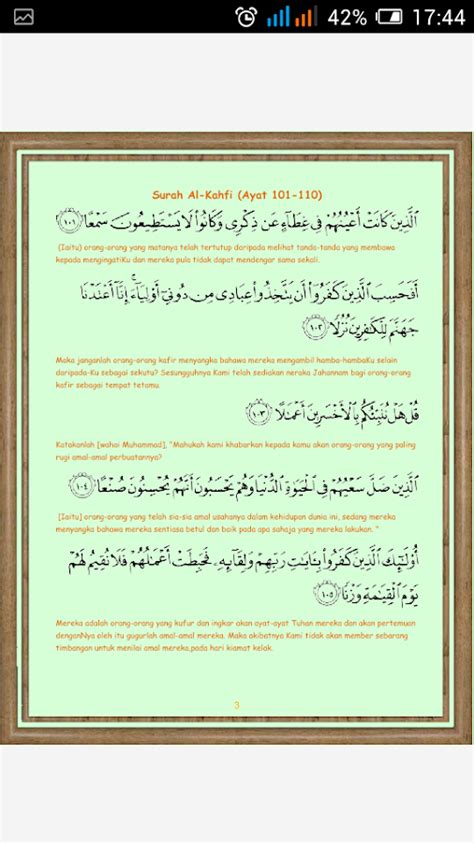 42% 17:44
Surah Al-Kahfi (Ayat 101-110)
الَّذِينَ كَانَتْ أَعْيُنُهُمْ فِي غِطَاءٍ عَن ذِكْرِي وَكَانُوا لَا يَسْتَطِيعُونَ سَمْعًا ١٠١
(Iaitu) orang-orang yang matanya telah tertutup daripada melihat tanda-tanda yang membawa
kepada mengingatiKu dan mereka pula tidak dapat mendengar sama sekali.
أَفَحَسِبَ الَّذِينَ كَفَرُوا أَن يَتَّخِذُوا عِبَادِي مِن دُونِي أَوْلِيَاءَ ۚ إِنَّا أَعْتَدْنَا
جَهَنَّمَ لِلْكَافِرِينَ نُزُلًا ١٠٢
Maka janganlah orang-orang kafir menyangka bahawa mereka mengambil hamba-hambaKu selain
daripada-Ku sebagai sekutu? Sesungguhnya Kami telah sediakan neraka Jahannam bagi orang-orang
kafir sebagai tempat tetamu.
قُلْ هَلْ نُنَبِّئُكُم بِالْأَخْسَرِينَ أَعْمَالًا ١٠٣
Katakanlah [wahai Muhammad], "Mahukah kami khabarkan kepada kamu akan orang-orang yang paling
rugi amal-amal perbuatannya?
الَّذِينَ ضَلَّ سَعْيُهُمْ فِي الْحَيَاةِ الدُّنْيَا وَهُمْ يَحْسَبُونَ أَنَّهُمْ يُحْسِنُونَ صُنْعًا ١٠٤
[Iaitu] orang-orang yang telah sia-sia amal usahanya dalam kehidupan dunia ini, sedang mereka
menyangka bahawa mereka sentiasa betul dan baik pada apa sahaja yang mereka lakukan. "
أُولَٰئِكَ الَّذِينَ كَفَرُوا بِآيَاتِ رَبِّهِمْ وَلِقَائِهِ فَحَبِطَتْ أَعْمَالُهُمْ فَلَا نُقِيمُ لَهُمْ
يَوْمَ الْقِيَامَةِ وَزْنًا ١٠٥
Mereka adalah orang-orang yang kufur dan ingkar akan ayat-ayat Tuhan mereka dan akan pertemuan
denganNya oleh itu gugurlah amal-amal mereka. Maka akibatnya Kami tidak akan member sebarang
timbangan untuk menilai amal mereka,pada hari kiamat kelak.
3